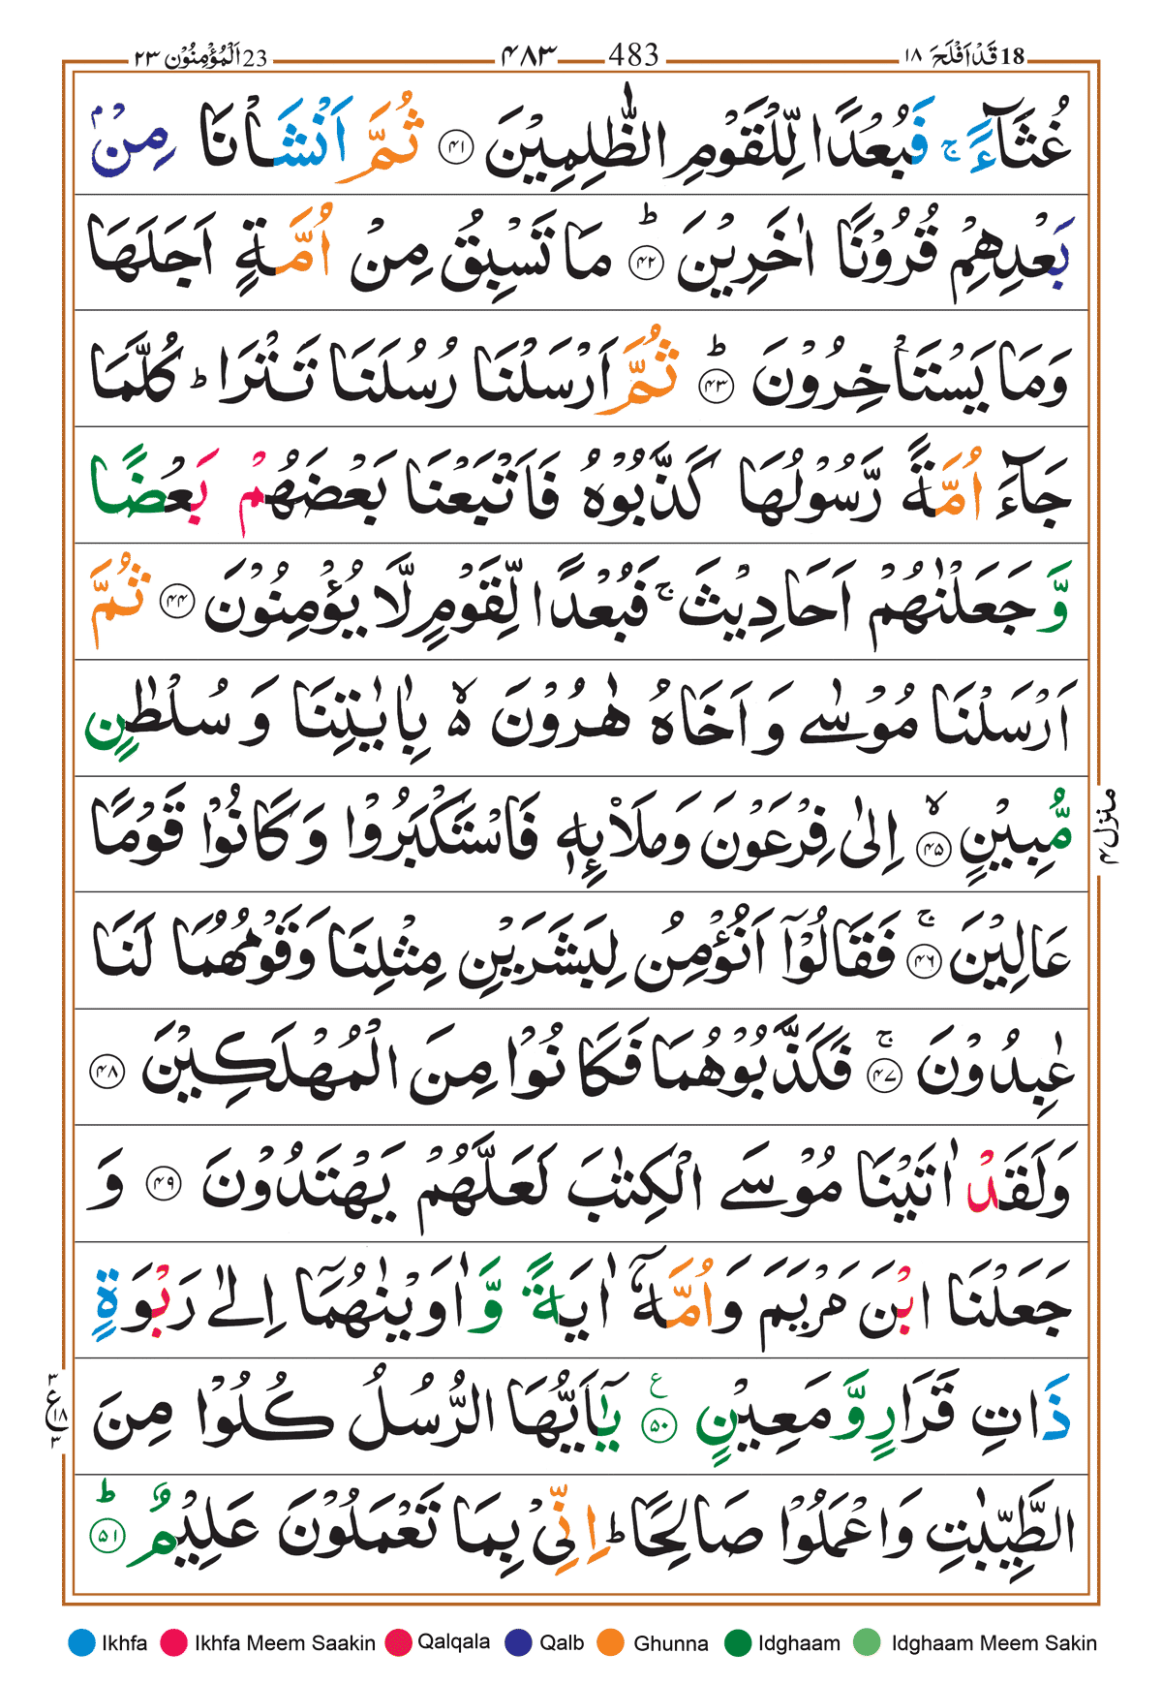 18 قَدْ اَفْلَحَ ۱۸ 483 ۴۸۳ 23 اَلْمُؤْمِنُوْن ۲۳
غُثَآءً ۚ فَبُعْدًا لِّلْقَوْمِ الظّٰلِمِيْنَ ۴۱ ثُمَّ اَنْشَاْنَا مِنْۢ
بَعْدِهِمْ قُرُوْنًا اٰخَرِيْنَ ؕ ۴۲ مَا تَسْبِقُ مِنْ اُمَّةٍ اَجَلَهَا
وَمَا يَسْتَاْخِرُوْنَ ؕ ۴۳ ثُمَّ اَرْسَلْنَا رُسُلَنَا تَتْرَا ؕ كُلَّمَا
جَآءَ اُمَّةً رَّسُوْلُهَا كَذَّبُوْهُ فَاَتْبَعْنَا بَعْضَهُمْ بَعْضًا
وَّ جَعَلْنٰهُمْ اَحَادِيْثَ ۚ فَبُعْدًا لِّقَوْمٍ لَّا يُؤْمِنُوْنَ ۴۴ ثُمَّ
اَرْسَلْنَا مُوْسٰى وَ اَخَاهُ هٰرُوْنَ ۙ۬ بِاٰيٰتِنَا وَ سُلْطٰنٍ
مُّبِيْنٍ ۙ ۴۵ اِلٰى فِرْعَوْنَ وَمَلَا۟ئِهٖ فَاسْتَكْبَرُوْا وَ كَانُوْا قَوْمًا
عَالِيْنَ ۚ ۴۶ فَقَالُوْٓا اَنُؤْمِنُ لِبَشَرَيْنِ مِثْلِنَا وَقَوْمُهُمَا لَنَا
عٰبِدُوْنَ ۚ ۴۷ فَكَذَّبُوْهُمَا فَكَانُوْا مِنَ الْمُهْلَكِيْنَ ۴۸
وَلَقَدْ اٰتَيْنَا مُوْسَى الْكِتٰبَ لَعَلَّهُمْ يَهْتَدُوْنَ ۴۹ وَ
جَعَلْنَا ابْنَ مَرْيَمَ وَاُمَّهٗۤ اٰيَةً وَّ اٰوَيْنٰهُمَاۤ اِلٰى رَبْوَةٍ
ذَاتِ قَرَارٍ وَّ مَعِيْنٍ ۵۰ ع يٰۤاَيُّهَا الرُّسُلُ كُلُوْا مِنَ
الطَّيِّبٰتِ وَاعْمَلُوْا صَالِحًا ؕ اِنِّيْ بِمَا تَعْمَلُوْنَ عَلِيْمٌ ؕ ۵۱
منزل ۴
۳ ع ۱۸ ۳
Ikhfa Ikhfa Meem Saakin Qalqala Qalb Ghunna Idghaam Idghaam Meem Sakin